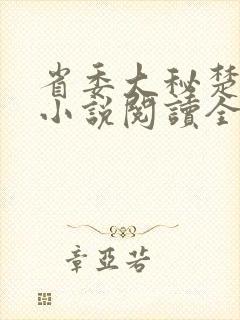 省委大秘楚
小說閱讀全
章亞若